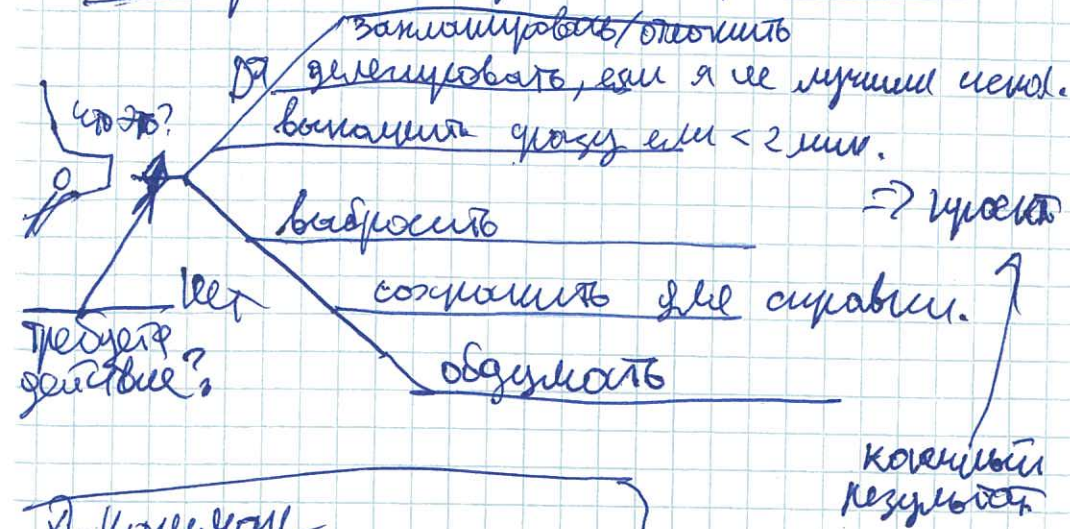 запланировать/отложить
Да делегировать, если я не лучший испол.
что это?
выполнить сразу если < 2 мин.
=> проект
выбросить
Нет сохранить для справки.
требует
действие?
обдумать
конечный
результат